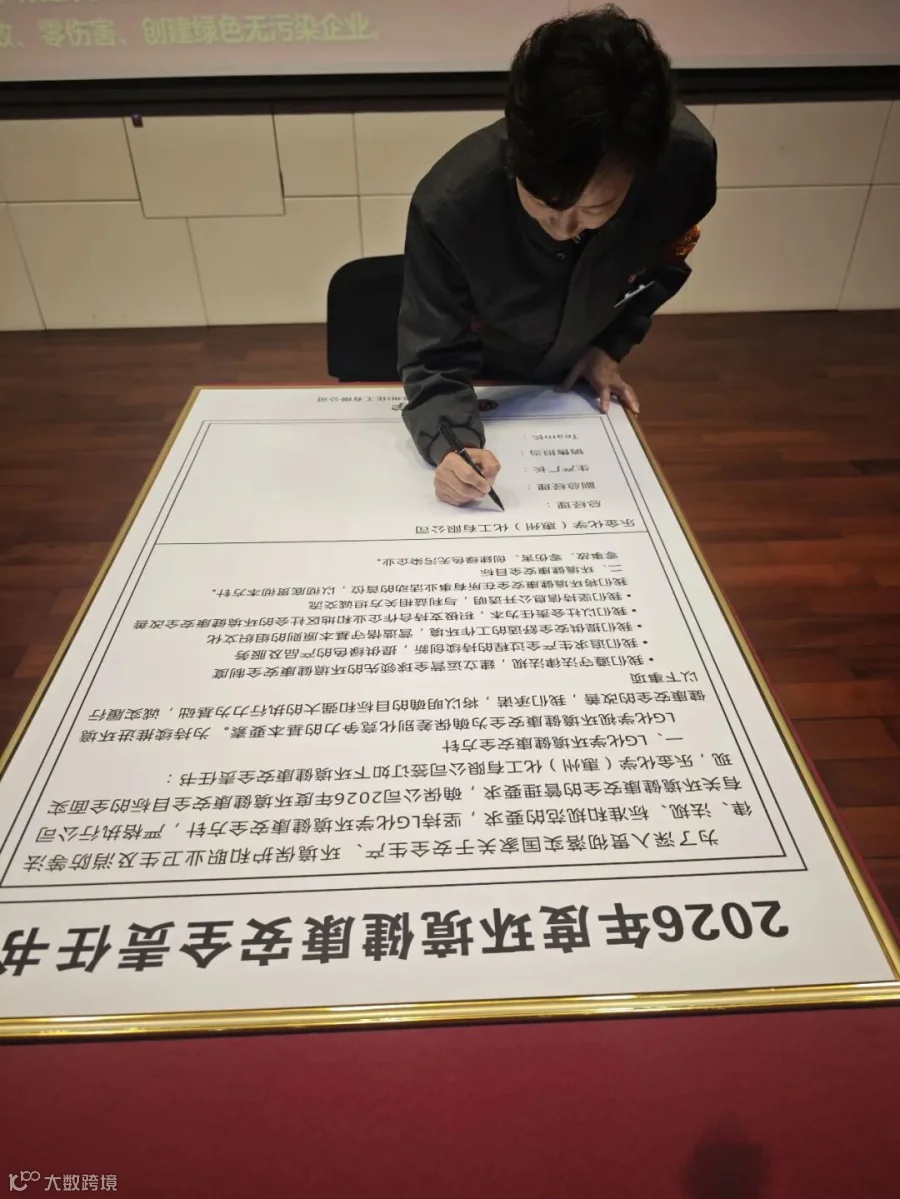 故、零伤害、创建绿色无污染企业。
2026年度环境健康安全责任书
为了深入贯彻落实国家关于安全生产、环境保护和职业卫生及消防等法
律、法规、标准和规范的要求，坚持LG化学环境健康安全方针，严格执行公司
有关环境健康安全的管理要求，确保公司2026年度环境健康安全目标的全面实
现，乐金化学（惠州）化工有限公司签订如下环境健康安全责任书：
一、LG化学环境健康安全方针
LG化学视环境健康安全为确保差别化竞争力的基本要素。为持续推进环境
健康安全的改善，我们承诺，将以明确的目标和强大的执行力为基础，诚实履行
以下事项
• 我们遵守法律法规，建立运营全球领先的环境健康安全制度
• 我们追求生产全过程的持续创新，提供绿色的产品及服务
• 我们提供安全舒适的工作环境，营造信守基本原则的组织文化
• 我们以社会责任为本，积极支持合作企业和地区社会的环境健康安全改善
• 我们坚持信息公开透明，与利益相关方坦诚交流
我们将环境健康安全在所有事业活动的首位，以彻底贯彻本方针。
二、环境健康安全目标
零事故、零伤害、创建绿色无污染企业。
乐金化学（惠州）化工有限公司
总经理：
副总经理：
生产厂长：
销售担当：
Team长：
州)化工有限公司
大数跨境